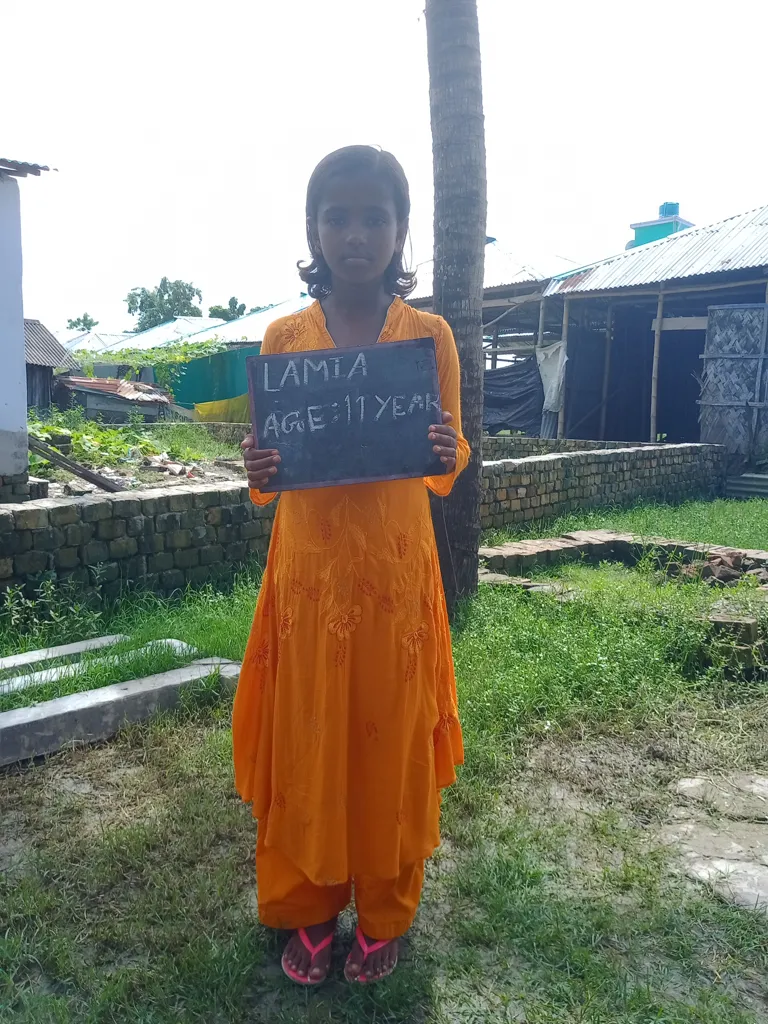 LAMIA
AGE:11 YEAR